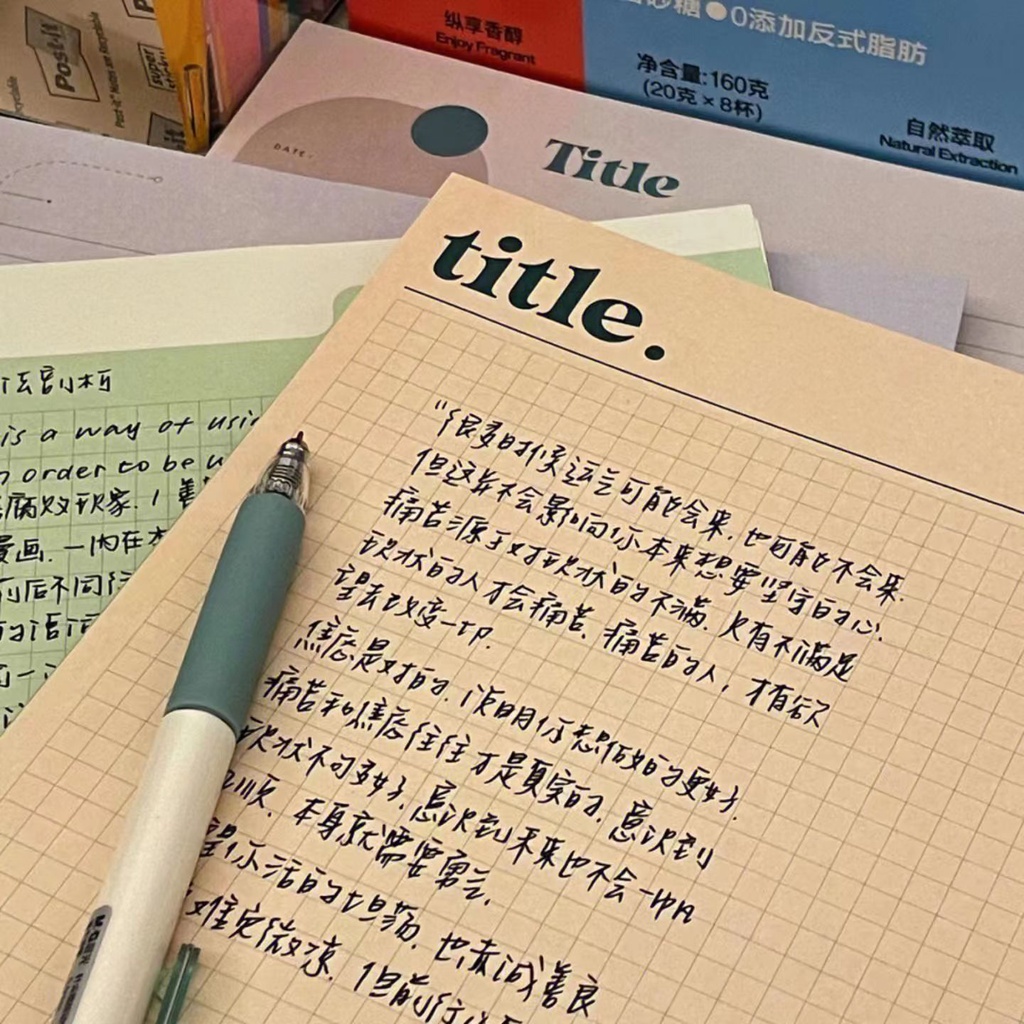 Post-it
super sticky
Post-it® Notes are Recyclable
纵享香醇
Enjoy Fragrant
砂糖●0添加反式脂肪
净含量:160克
(20克×8杯)
自然萃取
Natural Extraction
DATE.
Title
title.
“很多时候运气可能会来,也可能不会来.
但这并不会影响你本来想要坚守的心.
痛苦源于对现状的不满.只有不满足
现状的人才会痛苦.痛苦的人,才有欲
望去改变一切.
焦虑是对的.说明你想做的更好.
痛苦和焦虑往往才是真实的.意识到
现状不可多好.意识到未来也不会一帆
风顺.本身就需要勇气.
望你活的坦荡.也赤诚善良
难免微凉.但前行
is a way of usin
n order to be u
腐败现象.1善
漫画.一内在本
前后不同
的语言